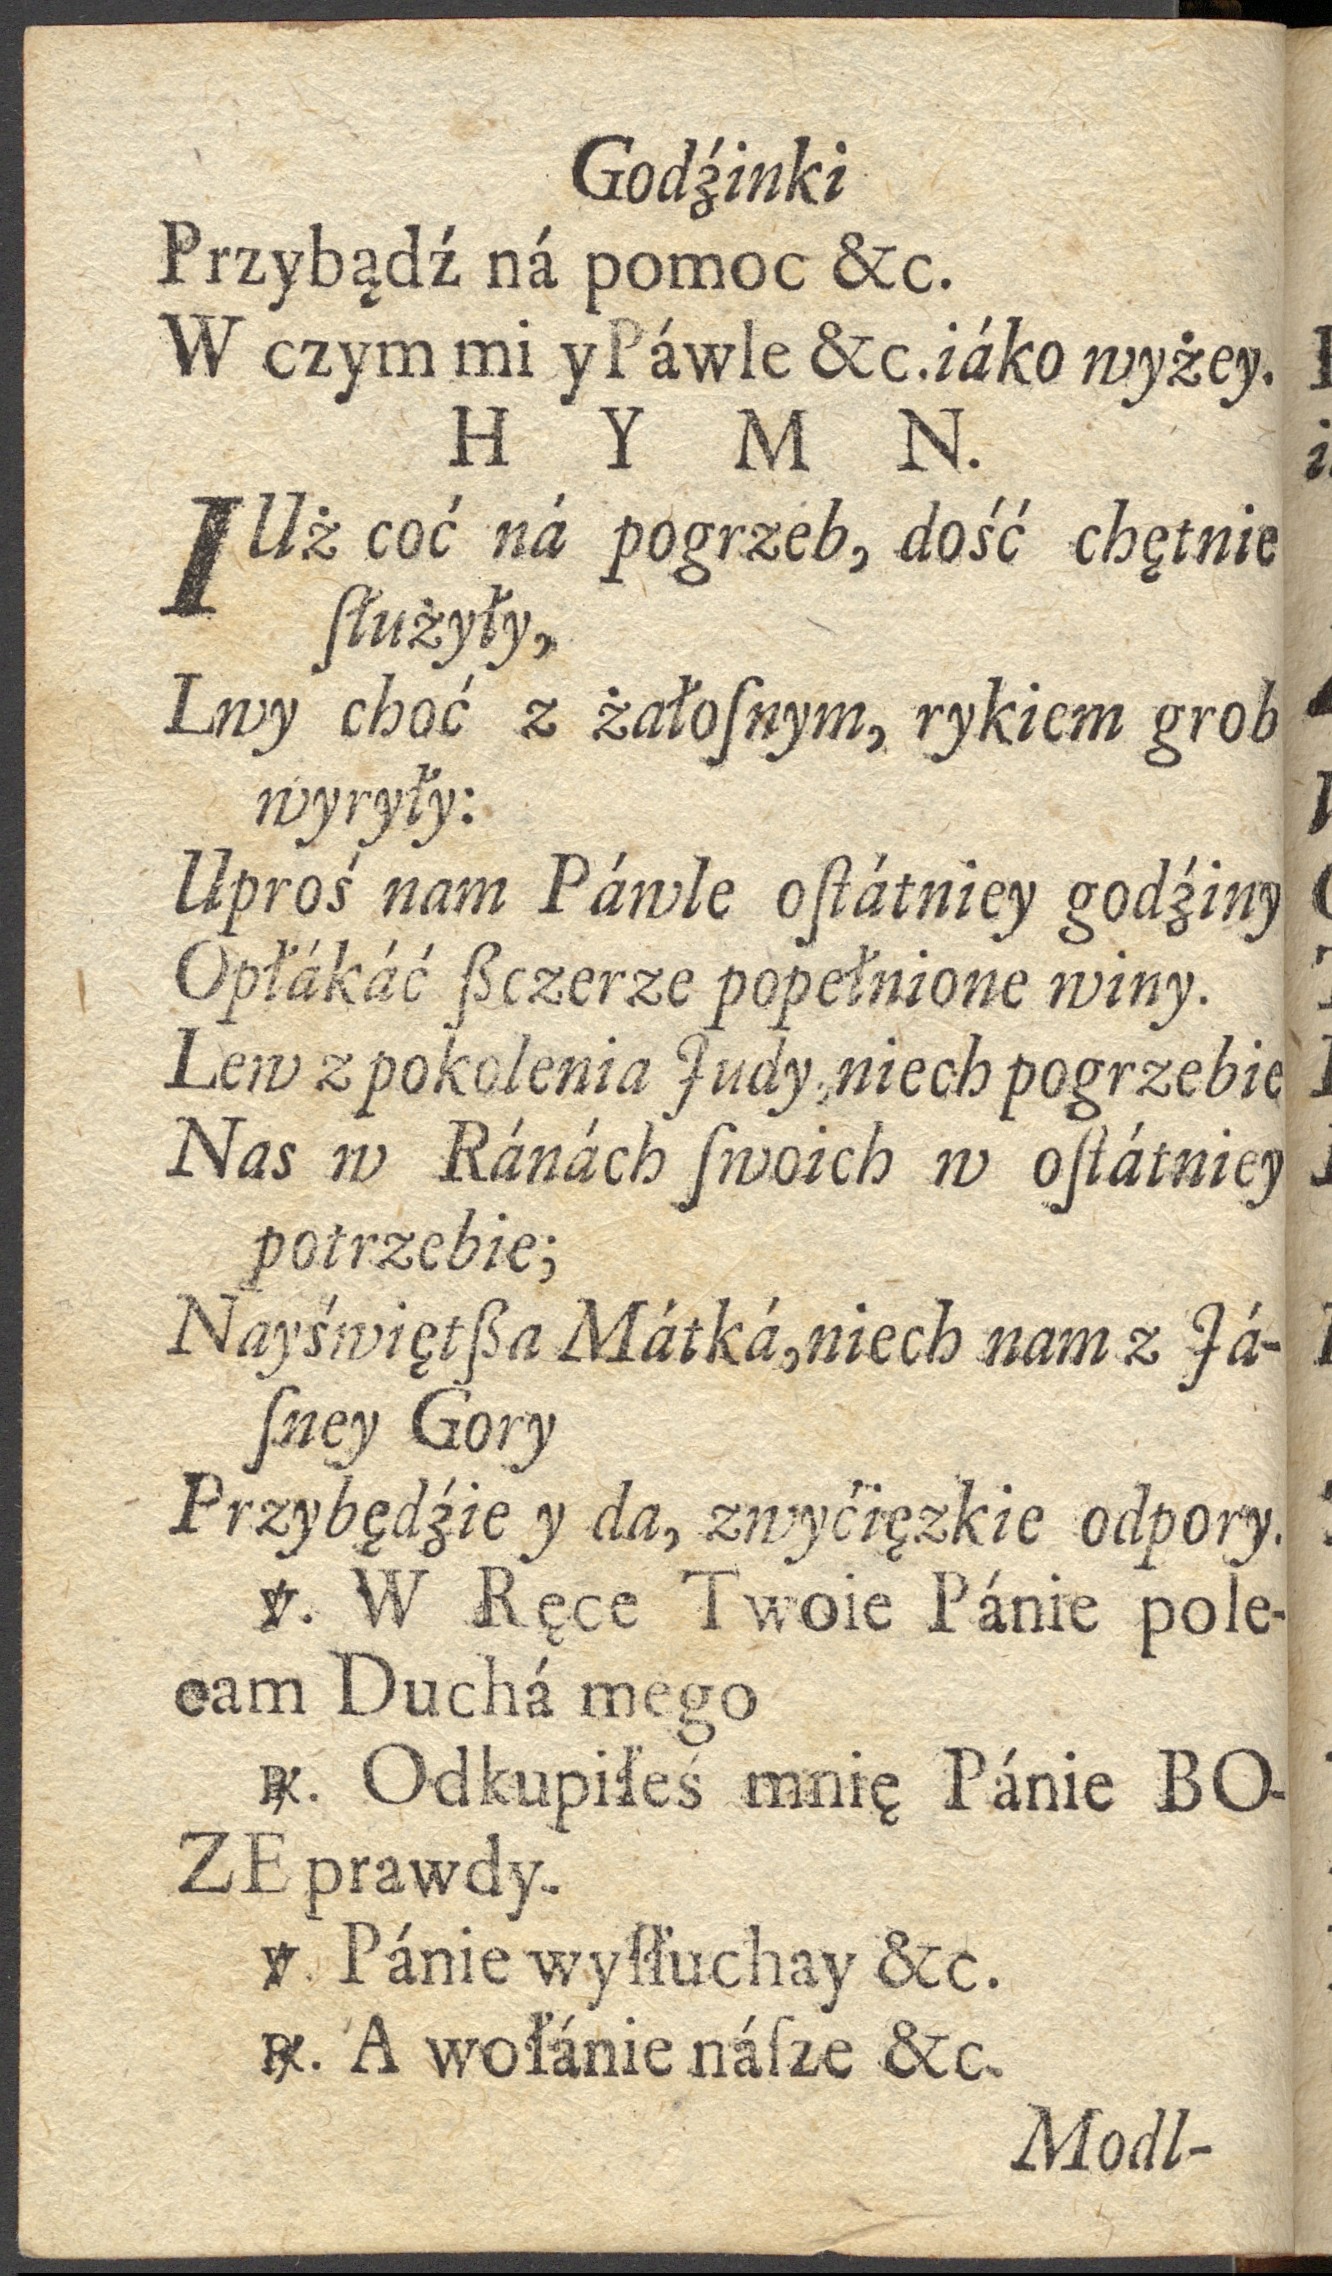 Godźinki
Przybądź ná pomoc &c.
W czym mi y Páwle &c. iáko wyżey.
H Y M N.
IUż coć ná pogrzeb, dość chętnie
ſłużyły,
Lwy choć z żałoſnym, rykiem grob
wyryły:
Uproś nam Páwle oſtátniey godźiny
Opłákáć ßczerze popełnione winy.
Lew z pokolenia Judy, niech pogrzebie
Nas w Ránách ſwoich w oſtátniey
potrzebie;
Nayświętßa Mátká, niech nam z Já-
ſney Gory
Przybędźie y da, zwyćięzkie odpory.
℣. W Ręce Twoie Pánie pole-
cam Duchá mego
℟. Odkupiłeś mnię Pánie BO-
ZE prawdy.
℣. Pánie wyſłuchay &c.
℟. A wołánie náſze &c.
Modl-